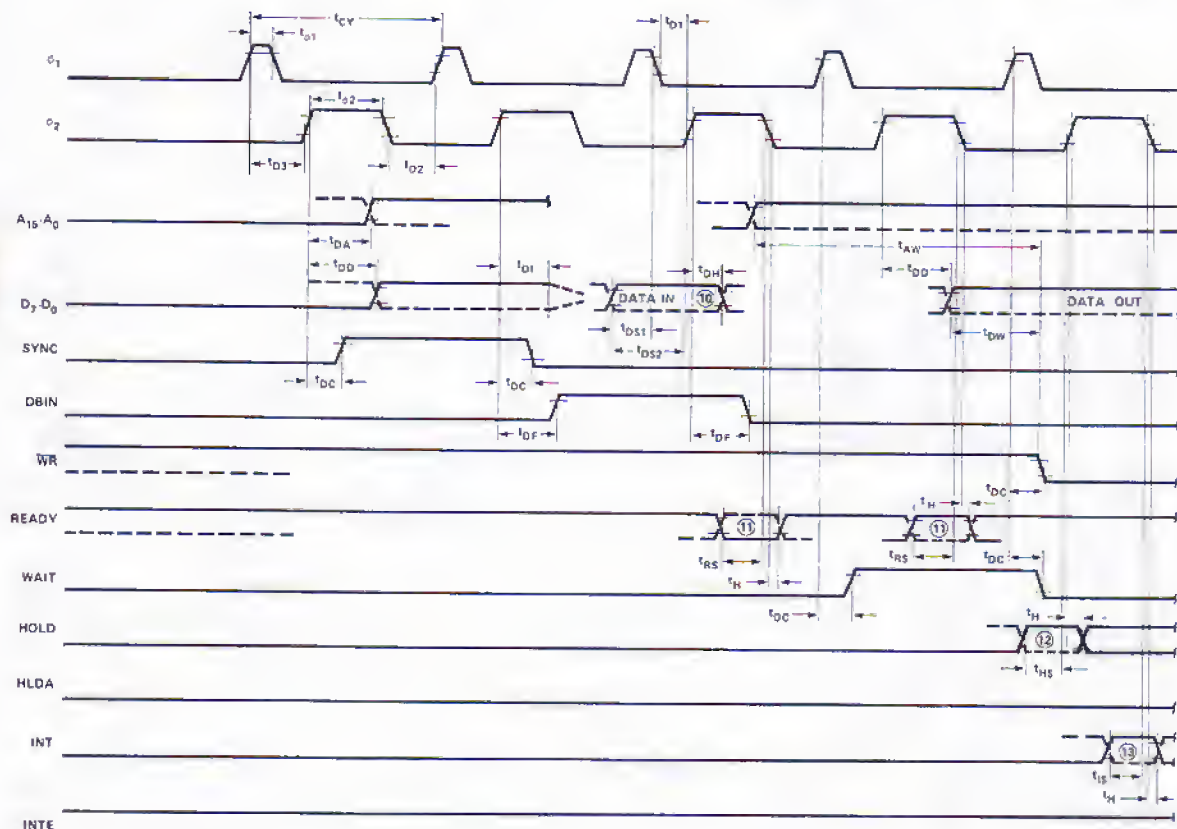 tCY
tD1
tø1
ø1
tø2
ø2
tD3
tD2
A15-A0
tDA
tAW
tDD
tDI
tDH
tDD
D7-D0
DATA IN
10
DATA OUT
tDS1
tDW
tDS2
SYNC
tDC
tDC
DBIN
tDF
tDF
WR
tDC
tH
READY
11
11
tRS
tRS
tDC
WAIT
tH
tDC
tH
HOLD
12
tHS
HLDA
INT
13
tIS
tH
INTE